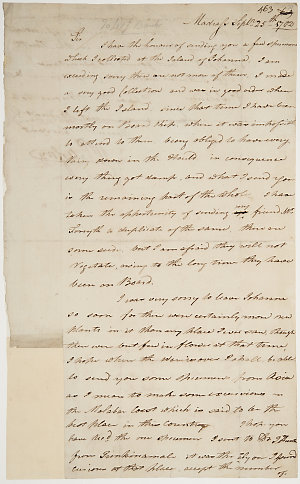 463
Madrass Septr 25th
Sir
I have the honour of sending you a few specimens
which I collected at the Island of Johanna. I am
exceeding sorry there are not more of them, I made
a very good Collection and was in good order when
I left the Island. since that time I have been
mostly on Board Ship. where it was impossible
to attend to them being obliged to have every
thing down in the Hould. in consequence
every thing got damp. and what I send you
is the remaining part of the whole. I have
taken the oppertunity of sending my friend Mr
Forsyth a duplicate of the same, there are
some seeds. but I am afraid they will not
Vegetate, owing to the long time they have
been on Board.
I was very sorry to leave Johanna
so soon for there were certainly more new
plants in it than any place I ever saw though
there were but few in flower at that time,
I hope when the war is over I shall be able
to send you some specimens from Asia
as I mean to make some excursions on
the Malabar Coast which is said to be the
best place in the Country. I hope you
have recd. the one specimen I sent to Dr.
from Trinkinamale it was the only one I found
curious at that place. except the number
of